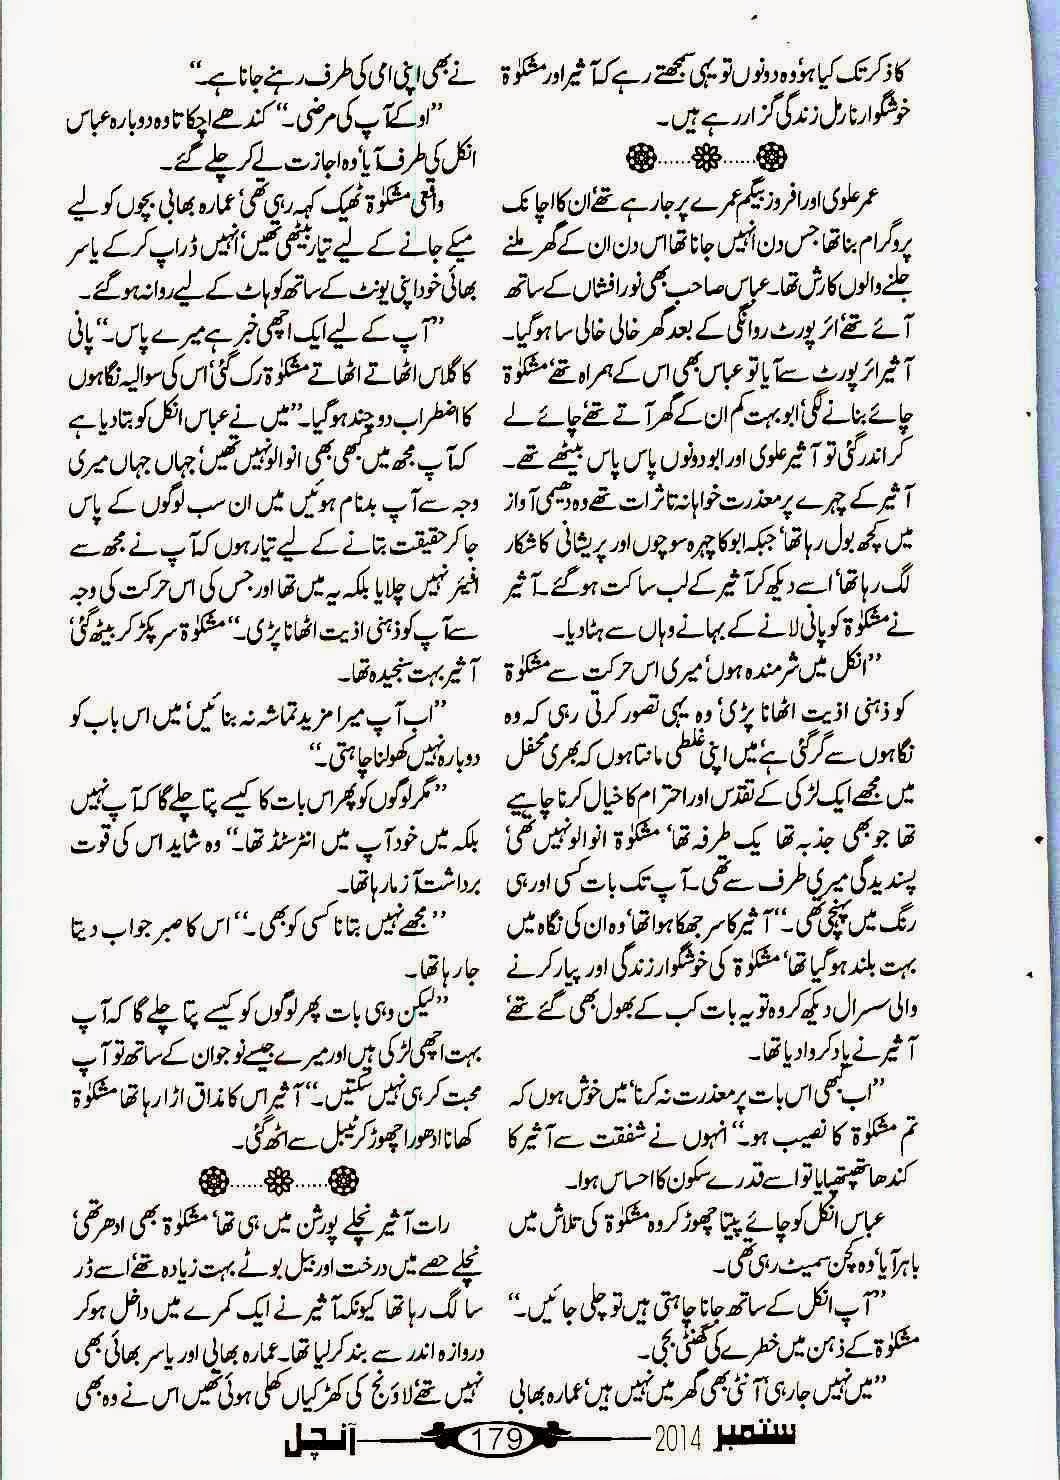 کا ذکر تک کیا ہو وہ دونوں تو یہی سمجھتے رہے کہ آشیر اور مشکوٰۃ
خوشگوار نارمل زندگی گزار رہے ہیں۔
عمر علوی اور افروز بیگم عمرے پر جارہے تھے‘ ان کا اچانک
پروگرام بنا تھا جس دن انہیں جانا تھا اس دن ان کے گھر ملنے
جلنے والوں کا رش تھا۔ عباس صاحب بھی نور افشاں کے ساتھ
آئے تھے‘ ائر پورٹ روانگی کے بعد گھر خالی خالی سا ہوگیا۔
آشیر ائر پورٹ سے آیا تو عباس بھی اس کے ہمراہ تھے‘ مشکوٰۃ
چائے بنانے لگی‘ ابو بہت کم ان کے گھر آتے تھے‘ چائے لے
کر اندر گئی تو آشیر علوی اور ابو دونوں پاس پاس بیٹھے تھے۔
آشیر کے چہرے پر معذرت خواہانہ تاثرات تھے وہ دھیمی آواز
میں کچھ بول رہا تھا‘ جبکہ ابو کا چہرہ سوچوں اور پریشانی کا شکار
لگ رہا تھا‘ اسے دیکھ کر آشیر کے لب ساکت ہوگئے۔ آشیر
نے مشکوٰۃ کو پانی لانے کے بہانے وہاں سے ہٹادیا۔
”انکل میں شرمندہ ہوں‘ میری اس حرکت سے مشکوٰۃ
کو ذہنی اذیت اٹھانا پڑی‘ وہ یہی تصور کرتی رہی کہ وہ
نگاہوں سے گر گئی ہے‘ میں اپنی غلطی مانتا ہوں کہ بھری محفل
میں مجھے ایک لڑکی کے تقدس اور احترام کا خیال کرنا چاہیے
تھا جو بھی جذبہ تھا یک طرفہ تھا‘ مشکوٰۃ انوالو نہیں تھی‘
پسندیدگی میری طرف سے تھی۔ آپ تک بات کسی اور ہی
رنگ میں پہنچی تھی۔“ آشیر کا سر جھکا ہوا تھا‘ وہ ان کی نگاہ میں
بہت بلند ہوگیا تھا‘ مشکوٰۃ کی خوشگوار زندگی اور پیار کرنے
والی سسرال دیکھ کر وہ تو یہ بات کب کے بھول بھی گئے تھے
آشیر نے یاد کروادیا تھا۔
”اب کبھی اس بات پر معذرت نہ کرنا‘ میں خوش ہوں کہ
تم مشکوٰۃ کا نصیب ہو۔“ انہوں نے شفقت سے آشیر کا
کندھا تھپتھپایا تو اسے قدرے سکون کا احساس ہوا۔
عباس انکل کو چائے پیتا چھوڑ کر وہ مشکوٰۃ کی تلاش میں
باہر آیا‘ وہ کچن سمیٹ رہی تھی۔
”آپ انکل کے ساتھ جانا چاہتی ہیں تو چلی جائیں۔“
مشکوٰۃ کے ذہن میں خطرے کی گھنٹی بجی۔
”میں نہیں جارہی‘ آنٹی بھی گھر میں نہیں ہیں‘ عمارہ بھابی
نے بھی اپنی امی کی طرف رہنے جانا ہے۔“
”اوکے آپ کی مرضی۔“ کندھے اچکاتا وہ دوبارہ عباس
انکل کی طرف آیا‘ وہ اجازت لے کر چلے گئے۔
واقعی مشکوٰۃ ٹھیک کہہ رہی تھی‘ عمارہ بھابی بچوں کو لیے
میکے جانے کے لیے تیار بیٹھی تھیں‘ انہیں ڈراپ کرکے یاسر
بھائی خود اپنی یونٹ کے ساتھ کوہاٹ کے لیے روانہ ہوگئے۔
”آپ کے لیے ایک اچھی خبر ہے میرے پاس۔“ پانی
کا گلاس اٹھاتے اٹھاتے مشکوٰۃ رک گئی‘ اس کی سوالیہ نگاہوں
کا اضطراب دوچند ہوگیا۔ ”میں نے عباس انکل کو بتادیا ہے
کہ آپ مجھ میں کبھی بھی انوالو نہیں تھیں‘ جہاں جہاں میری
وجہ سے آپ بدنام ہوئیں میں ان سب لوگوں کے پاس
جاکر حقیقت بتانے کے لیے تیار ہوں کہ آپ نے مجھ سے
افیئر نہیں چلایا بلکہ یہ میں تھا اور جس کی اس حرکت کی وجہ
سے آپ کو ذہنی اذیت اٹھانا پڑی۔“ مشکوٰۃ سر پکڑ کر بیٹھ گئی‘
آشیر بہت سنجیدہ تھا۔
”اب آپ میرا مزید تماشہ نہ بنائیں‘ میں اس باب کو
دوبارہ نہیں کھولنا چاہتی۔“
”مگر لوگوں کو پھر اس بات کا کیسے پتا چلے گا کہ آپ نہیں
بلکہ میں خود آپ میں انٹرسٹڈ تھا۔“ وہ شاید اس کی قوت
برداشت آزما رہا تھا۔
”مجھے نہیں بتانا کسی کو بھی۔“ اس کا صبر جواب دیتا
جارہا تھا۔
”لیکن وہی بات پھر لوگوں کو کیسے پتا چلے گا کہ آپ
بہت اچھی لڑکی ہیں اور میرے جیسے نوجوان کے ساتھ تو آپ
محبت کر ہی نہیں سکتیں۔“ آشیر اس کا مذاق اڑا رہا تھا مشکوٰۃ
کھانا ادھورا چھوڑ کر ٹیبل سے اٹھ گئی۔
رات آشیر نچلے پورشن میں ہی تھا‘ مشکوٰۃ بھی ادھر تھی‘
نچلے حصے میں درخت اور بیل بوٹے بہت زیادہ تھے‘ اسے ڈر
سا لگ رہا تھا کیونکہ آشیر نے ایک کمرے میں داخل ہوکر
دروازہ اندر سے بند کرلیا تھا۔ عمارہ بھابی اور یاسر بھائی بھی
نہیں تھے‘ لاؤنج کی کھڑکیاں کھلی ہوئی تھیں اس نے وہ بھی
ستمبر 2014 179 آنچل